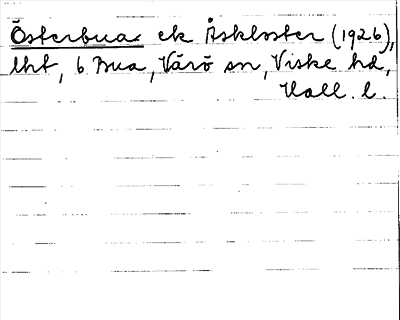 Österbua ek Åskloster (1926),
lht, 6 Bua, Värö sn, Viske hd,
Hall. l.